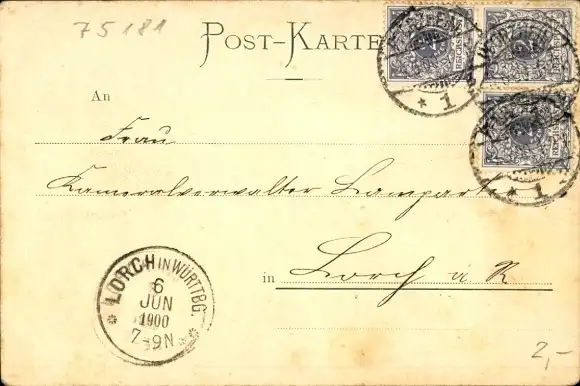 75181
POST-KARTE
An
Frau
Kameralverwalter Lamparter
in Lorch a R
LORCH IN WÜRTTBG.
6
JUN
1900
7-9N
* 1
* 1
2
2
2
2,-